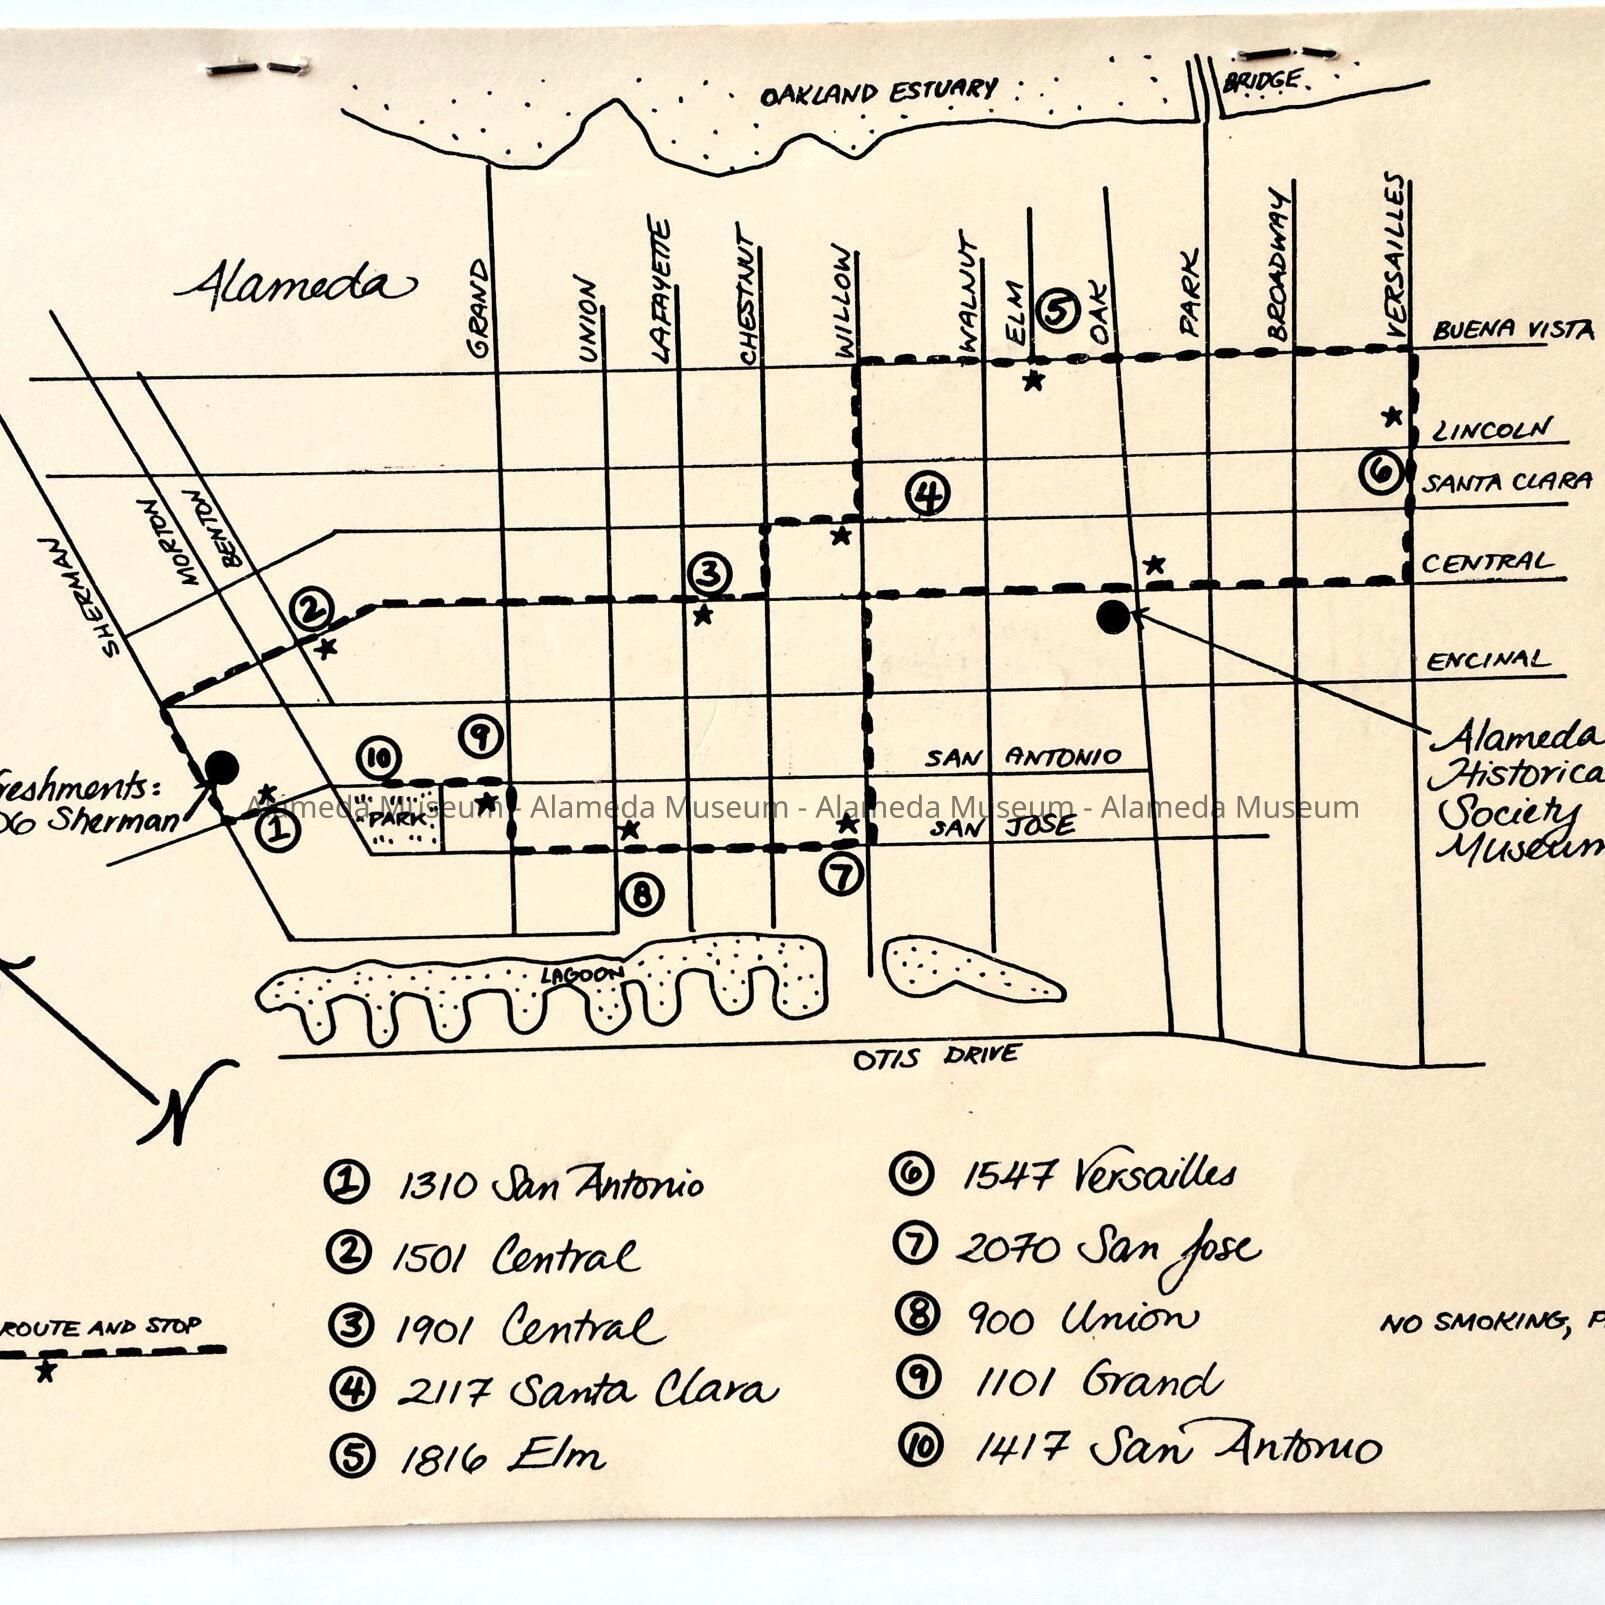 OAKLAND ESTUARY
BRIDGE
Alameda
GRAND
UNION
LAFAYETTE
CHESTNUT
WILLOW
WALNUT
ELM
5
OAK
PARK
BROADWAY
VERSAILLES
BUENA VISTA
LINCOLN
6
SANTA CLARA
4
SHERMAN
MORTON
BENTON
2
3
CENTRAL
ENCINAL
10
9
SAN ANTONIO
Alameda
Historica
Society
Museum
reshments:
06 Sherman
1
PARK
Alameda Museum - Alameda Museum - Alameda Museum - Alameda Museum
SAN JOSE
8
7
LAGOON
OTIS DRIVE
N
1 1310 San Antonio
2 1501 Central
3 1901 Central
4 2117 Santa Clara
5 1816 Elm
6 1547 Versailles
7 2070 San Jose
8 900 Union
9 1101 Grand
10 1417 San Antonio
ROUTE AND STOP
NO SMOKING,